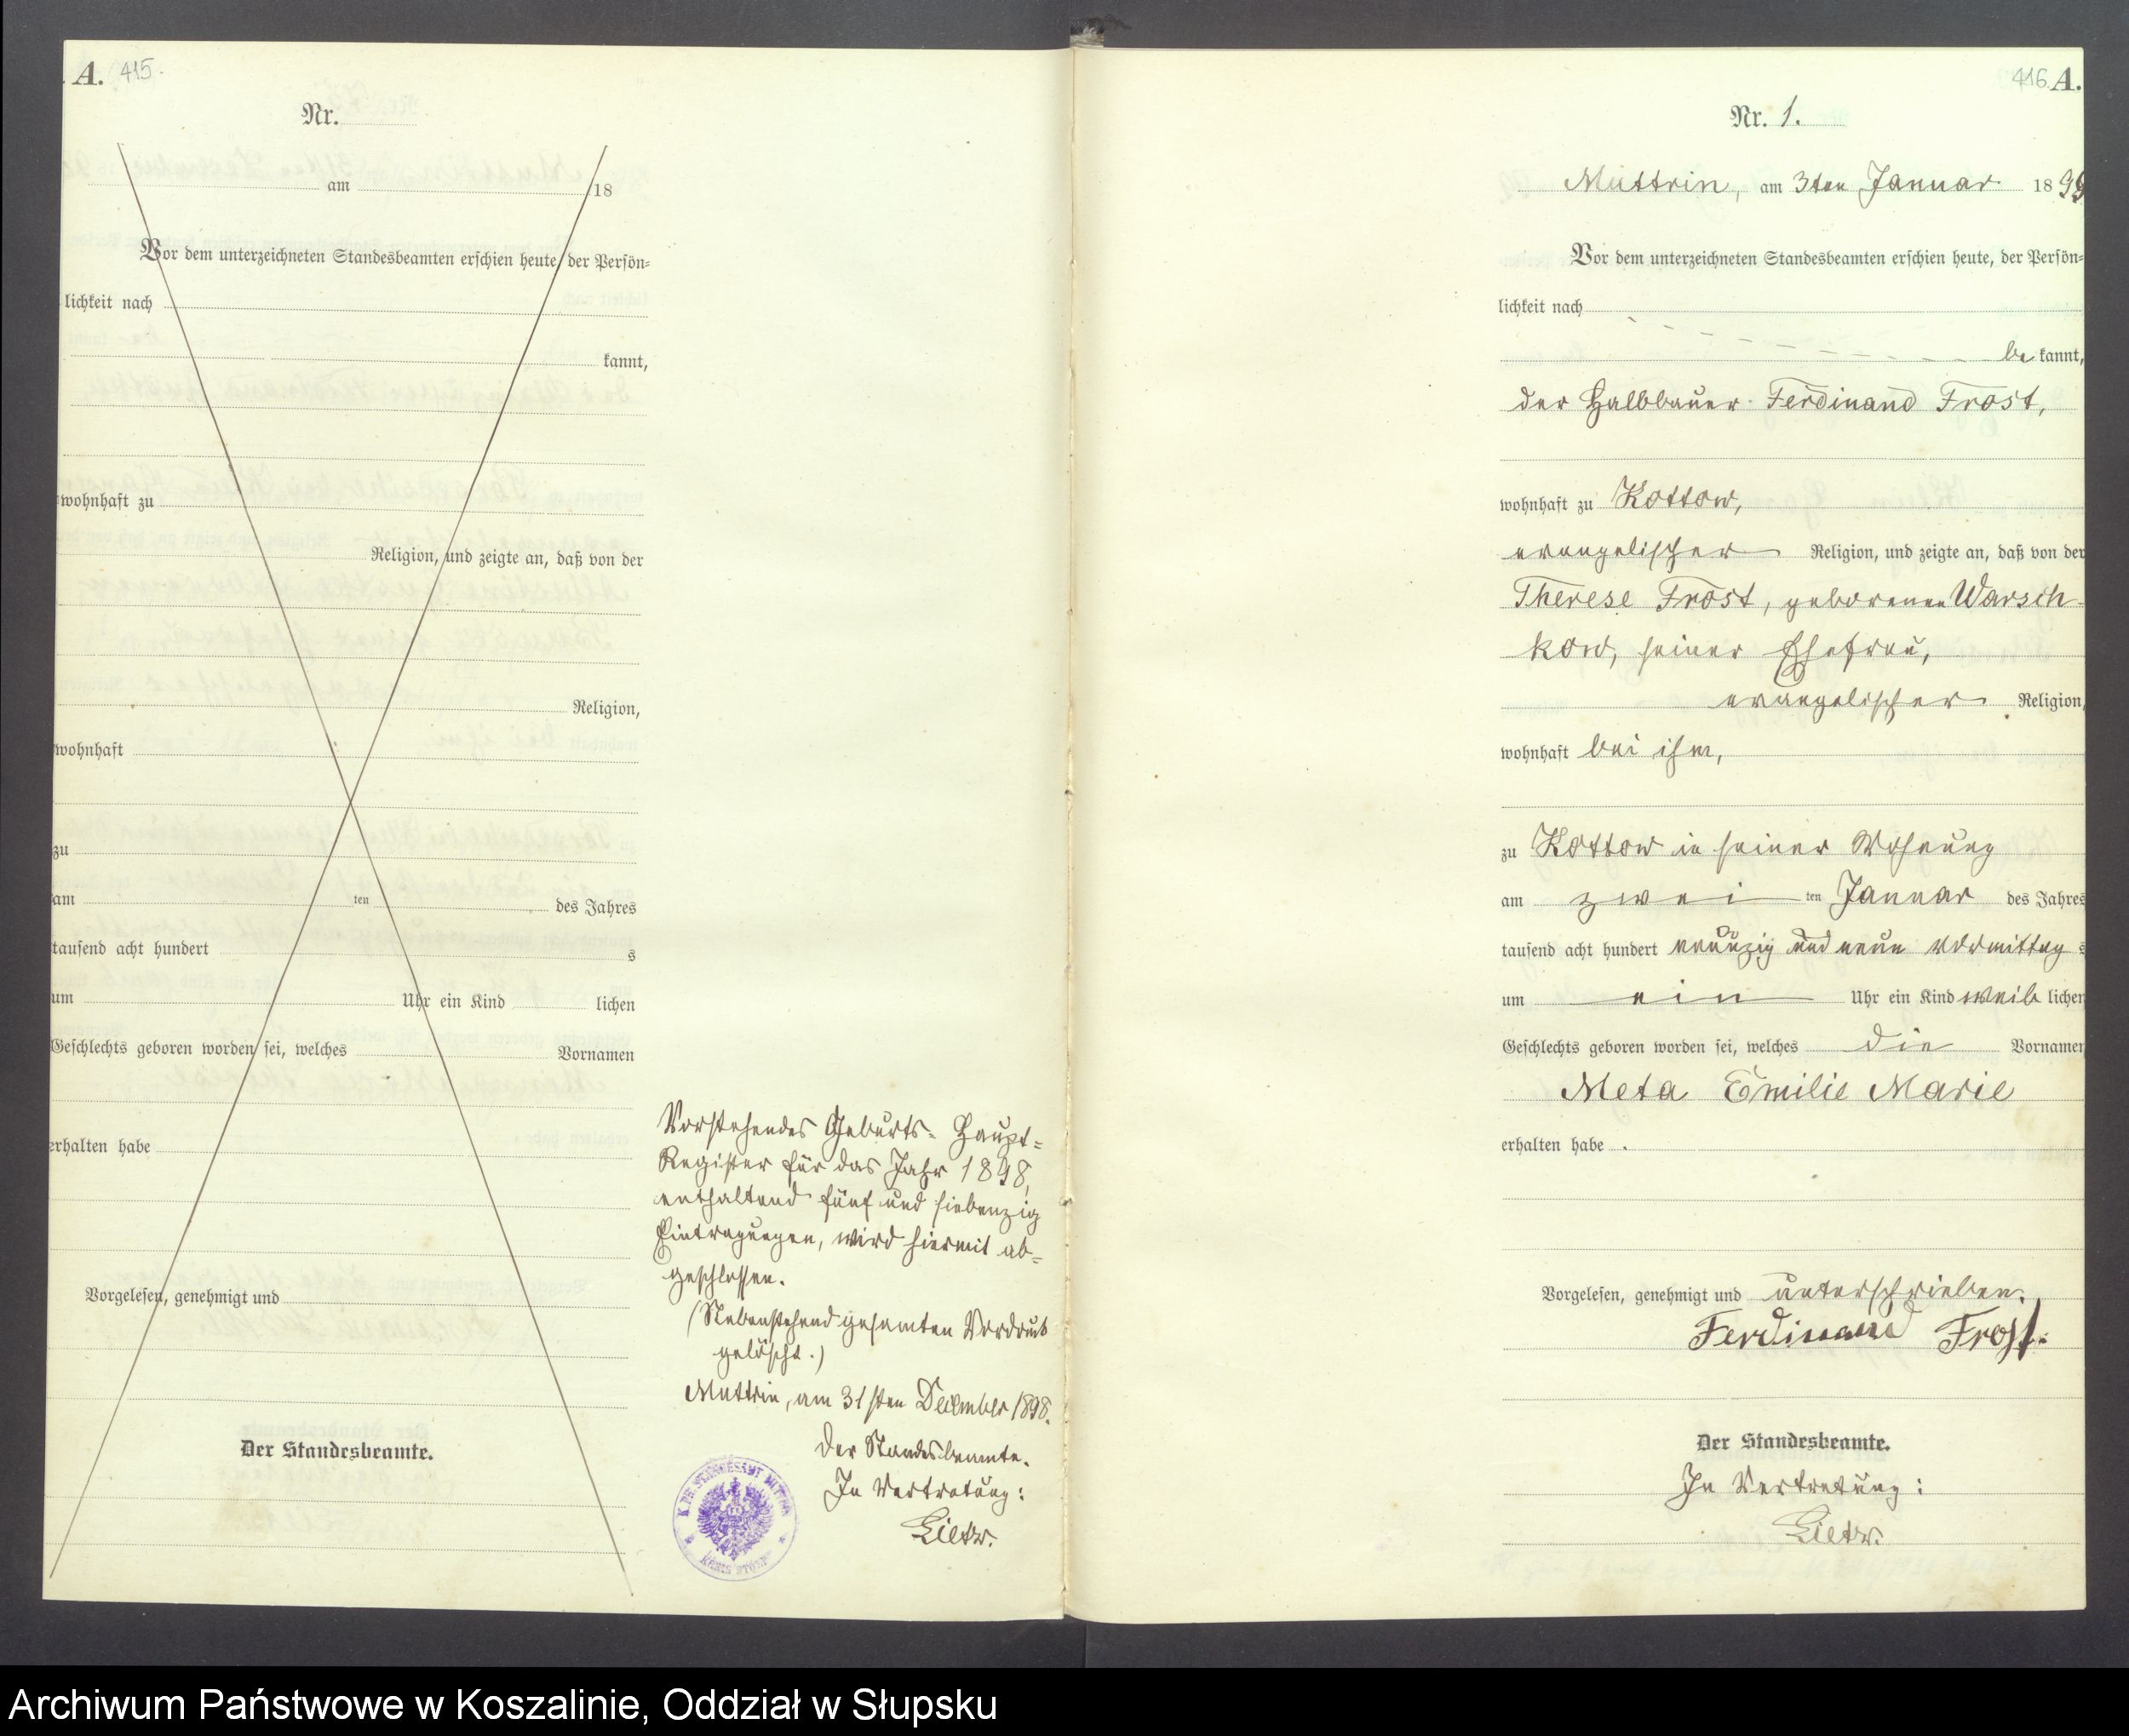 A. 415.
Nr.
am 18
Vor dem unterzeichneten Standesbeamten erschien heute, der Persön=
lichkeit nach
kannt,
wohnhaft zu
Religion, und zeigte an, daß von der
Religion,
wohnhaft
zu
am ten des Jahres
tausend acht hundert s
um Uhr ein Kind lichen
Geschlechts geboren worden sei, welches Vornamen
erhalten habe
Vorgelesen, genehmigt und
Der Standesbeamte.
Vorstehendes Geburts- Haupt=
Register für das Jahr 1898,
enthaltend fünf und siebenzig
Eintragungen, wird hiermit ab=
geschlossen.
(Nebenstehend gesamten Vordruck
gelöscht.)
Muttrin, am 31sten Dezember 1898.
Der Standesbeamte.
In Vertretung:
Lietz.
K. PR. STANDESAMT MUTTRIN
KREIS STOLP
416. A.
Nr. 1.
Muttrin, am 3ten Januar 1899
Vor dem unterzeichneten Standesbeamten erschien heute, der Persön=
lichkeit nach
be kannt,
der Halbbauer Ferdinand Frost,
wohnhaft zu Kottow,
evangelischer Religion, und zeigte an, daß von der
Therese Frost, geborenen Warsch-
kow, seiner Ehefrau,
evangelischer Religion,
wohnhaft bei ihm,
zu Kottow in seiner Wohnung
am zwei ten Januar des Jahres
tausend acht hundert neunzig und neun vormittag s
um ein Uhr ein Kind weib lichen
Geschlechts geboren worden sei, welches die Vornamen
Meta Emilie Marie
erhalten habe .
Vorgelesen, genehmigt und unterschrieben.
Ferdinand Frost.
Der Standesbeamte.
In Vertretung:
Lietz.
Archiwum Państwowe w Koszalinie, Oddział w Słupsku